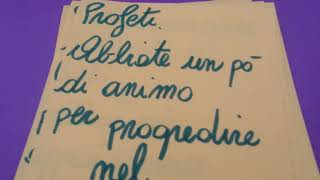 Profeti.
Abbiate un pò
di animo
per progredire
nel